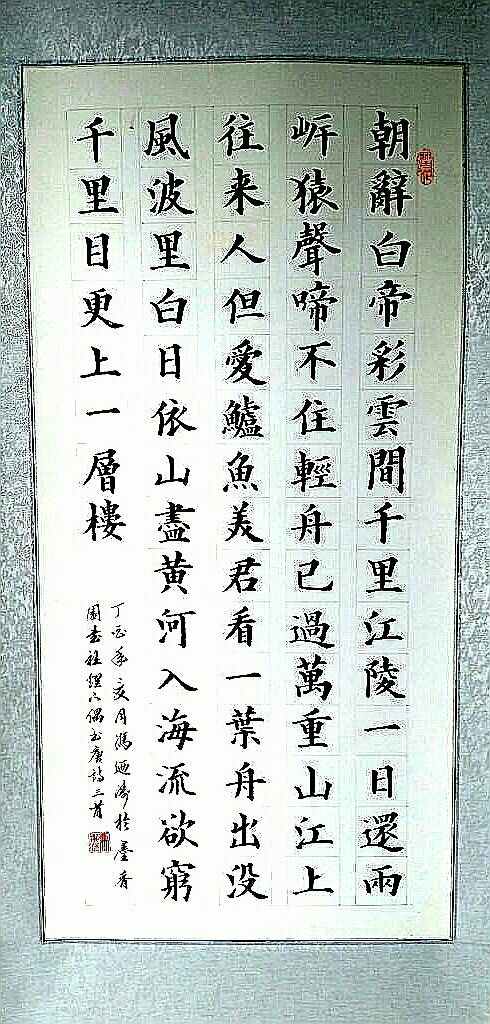 朝辭白帝彩雲間千里江陵一日還兩
岸猿聲啼不住輕舟已過萬重山江上
往来人但愛鱸魚美君看一葉舟出没
風波里白日依山盡黄河入海流欲窮
千里目更上一層樓
丁酉年亥月馮於墨香
園書社唐詩三首